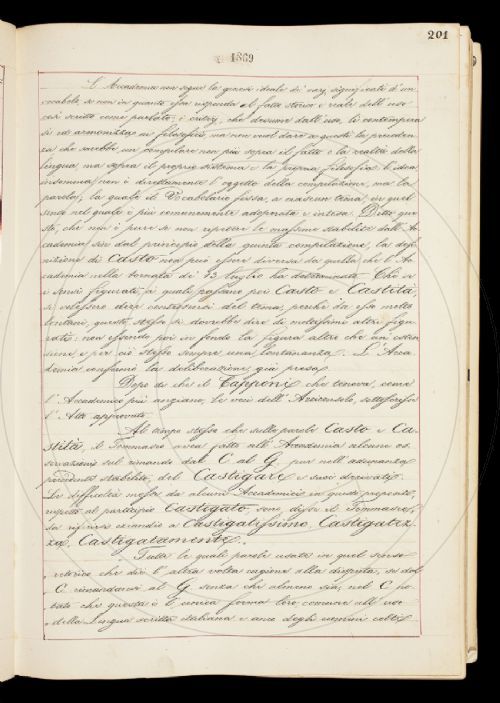 201
1869
L'Accademia non segue la genesi ideale dei varj significati d'un
vocabolo, se non in quanto essa risponda al fatto storico e reale dell'uso
così scritto come parlato; i criterj, che desume dall'uso, li contempera
si ed armonizza ai filosofici, ma non vuol dare a questi la preceden-
za che sarebbe un compilare non più sopra il fatto e la realtà della
lingua, ma sopra il proprio sistema e la propria filosofia. L'idea
insomma non è direttamente l'oggetto della compilazione, ma la
parola; la quale il Vocabolario fissa, a ciascun tema, in quel
senso nel quale è più comunemente adoperata e intesa. Detto que
sto, che non è pure se non ripetere le massime stabilite dall'Ac
cademia sin dal principio della quinta compilazione, la defi
nizione di Casto non può essere diversa da quella che l'Ac
cademia nella tornata di 13 luglio ha determinata. Che se
i sensi figurati, ai quali passano poi Casto e Castità,
si volessero dire lontanissimi dal tema, perché da esso molto
lontani, questo stesso si dovrebbe dire di moltissimi altri figu
rati: non essendo poi in fondo la figura altro che un'esten
sione, e per ciò stesso sempre una lontananza. L'Acca
demia confermò la deliberazione già presa.
Dopo di che il Capponi che teneva, come
l'Accademico più anziano, le veci dell'Arciconsolo, sottoscrisse
l'Atto approvato.
Al tempo stesso che sulle parole Casto e Ca-
stità, il Tommaseo avea fatte all'Accademia alcune os
servazioni sul rimando dal C al G. pur nell'adunanza
precedente stabilito, del Castigare e suoi derivati.
La difficoltà mossa da alcuni Accademici in questo proposito,
rispetto al participio Castigato, sono, disse il Tommaseo,
da riferirsi eziandio a Castigatissimo, Castigatez-
za, Castigatamente.
"Tutte le quali parole usate in quel senso
" retorico che diè l'altra volta cagione alla disputa, se dal
" C rimandansi al G senza che almeno sia, nel C no
" tato che questa è l'unica forma loro comune all'uso
" della Lingua scritta italiana e anco degli uomini colti